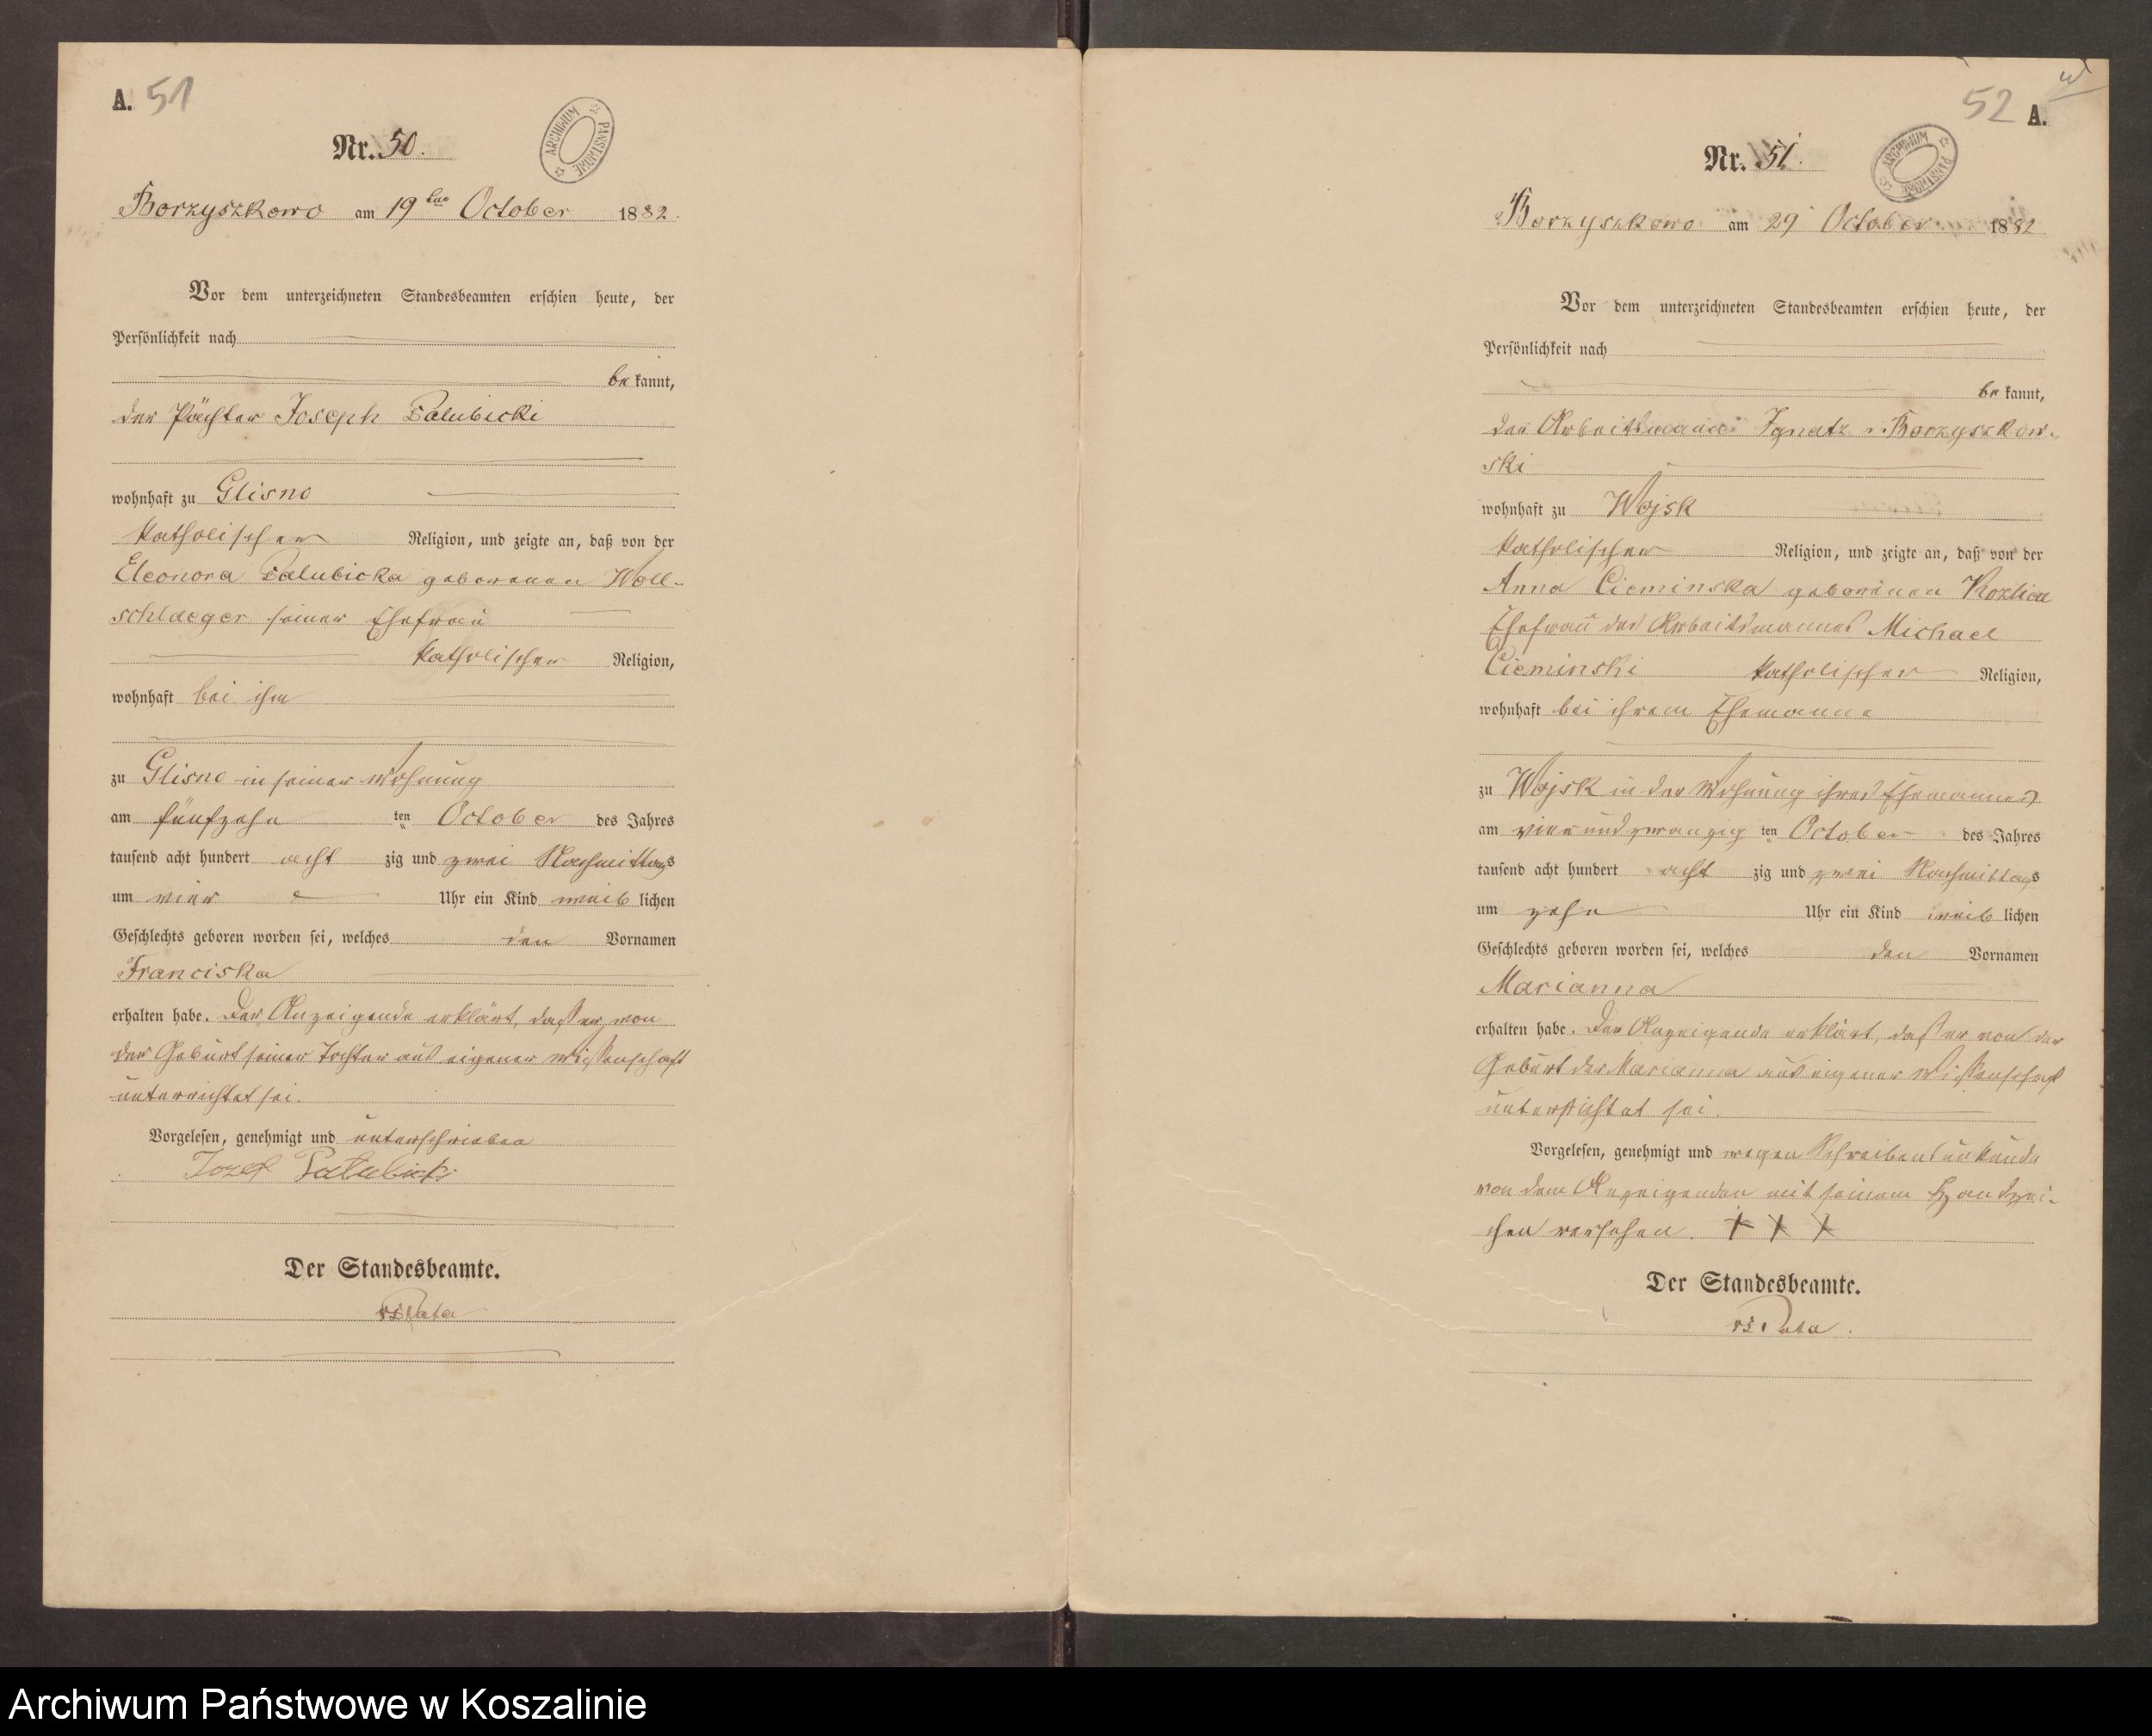 A. 51
ARCHIWUM PAŃSTWOWE
Nr. 50.
Borzyszkowo am 19ten October 1882.
Vor dem unterzeichneten Standesbeamten erschien heute, der
Persönlichkeit nach
be kannt,
der Pächter Joseph Palubicki
wohnhaft zu Glisno
katholischer Religion, und zeigte an, daß von der
Eleonora Palubicka geborenen Woll-
schlaeger seiner Ehefrau
katholischer Religion,
wohnhaft bei ihm
zu Glisno in seiner Wohnung
am fünfzehn ten October des Jahres
tausend acht hundert acht zig und zwei Nachmittags
um vier Uhr ein Kind weib lichen
Geschlechts geboren worden sei, welches den Vornamen
Franciska
erhalten habe. Der Anzeigende erklärt, daß er von
der Geburt seiner Tochter aus eigener Wissenschaft
unterrichtet sei.
Vorgelesen, genehmigt und unterschrieben
Jozef Pałubicki
Der Standesbeamte.
52 A.
ARCHIWUM PAŃSTWOWE
Nr. 51.
Borzyszkowo am 29 October 1882
Vor dem unterzeichneten Standesbeamten erschien heute, der
Persönlichkeit nach
be kannt,
der Arbeitsmann Ignatz v. Borzyszkow-
ski
wohnhaft zu Wojsk
katholischer Religion, und zeigte an, daß von der
Anna Cieminska geborenen
Ehefrau des Arbeitsmannes Michael
Cieminski katholischer Religion,
wohnhaft bei ihrem Ehemanne
zu Wojsk in der Wohnung ihres Ehemannes
am vier und zwanzig ten October des Jahres
tausend acht hundert acht zig und zwei Nachmittags
um zehn Uhr ein Kind weib lichen
Geschlechts geboren worden sei, welches den Vornamen
Marianna
erhalten habe. Der Anzeigende erklärt, daß er von der
Geburt der Marianna aus eigener Wissenschaft
unterrichtet sei.
Vorgelesen, genehmigt und wegen Schreibensunkunde
von dem Anzeigenden mit seinem Handzei-
chen versehen. + + +
Der Standesbeamte.
Archiwum Państwowe w Koszalinie